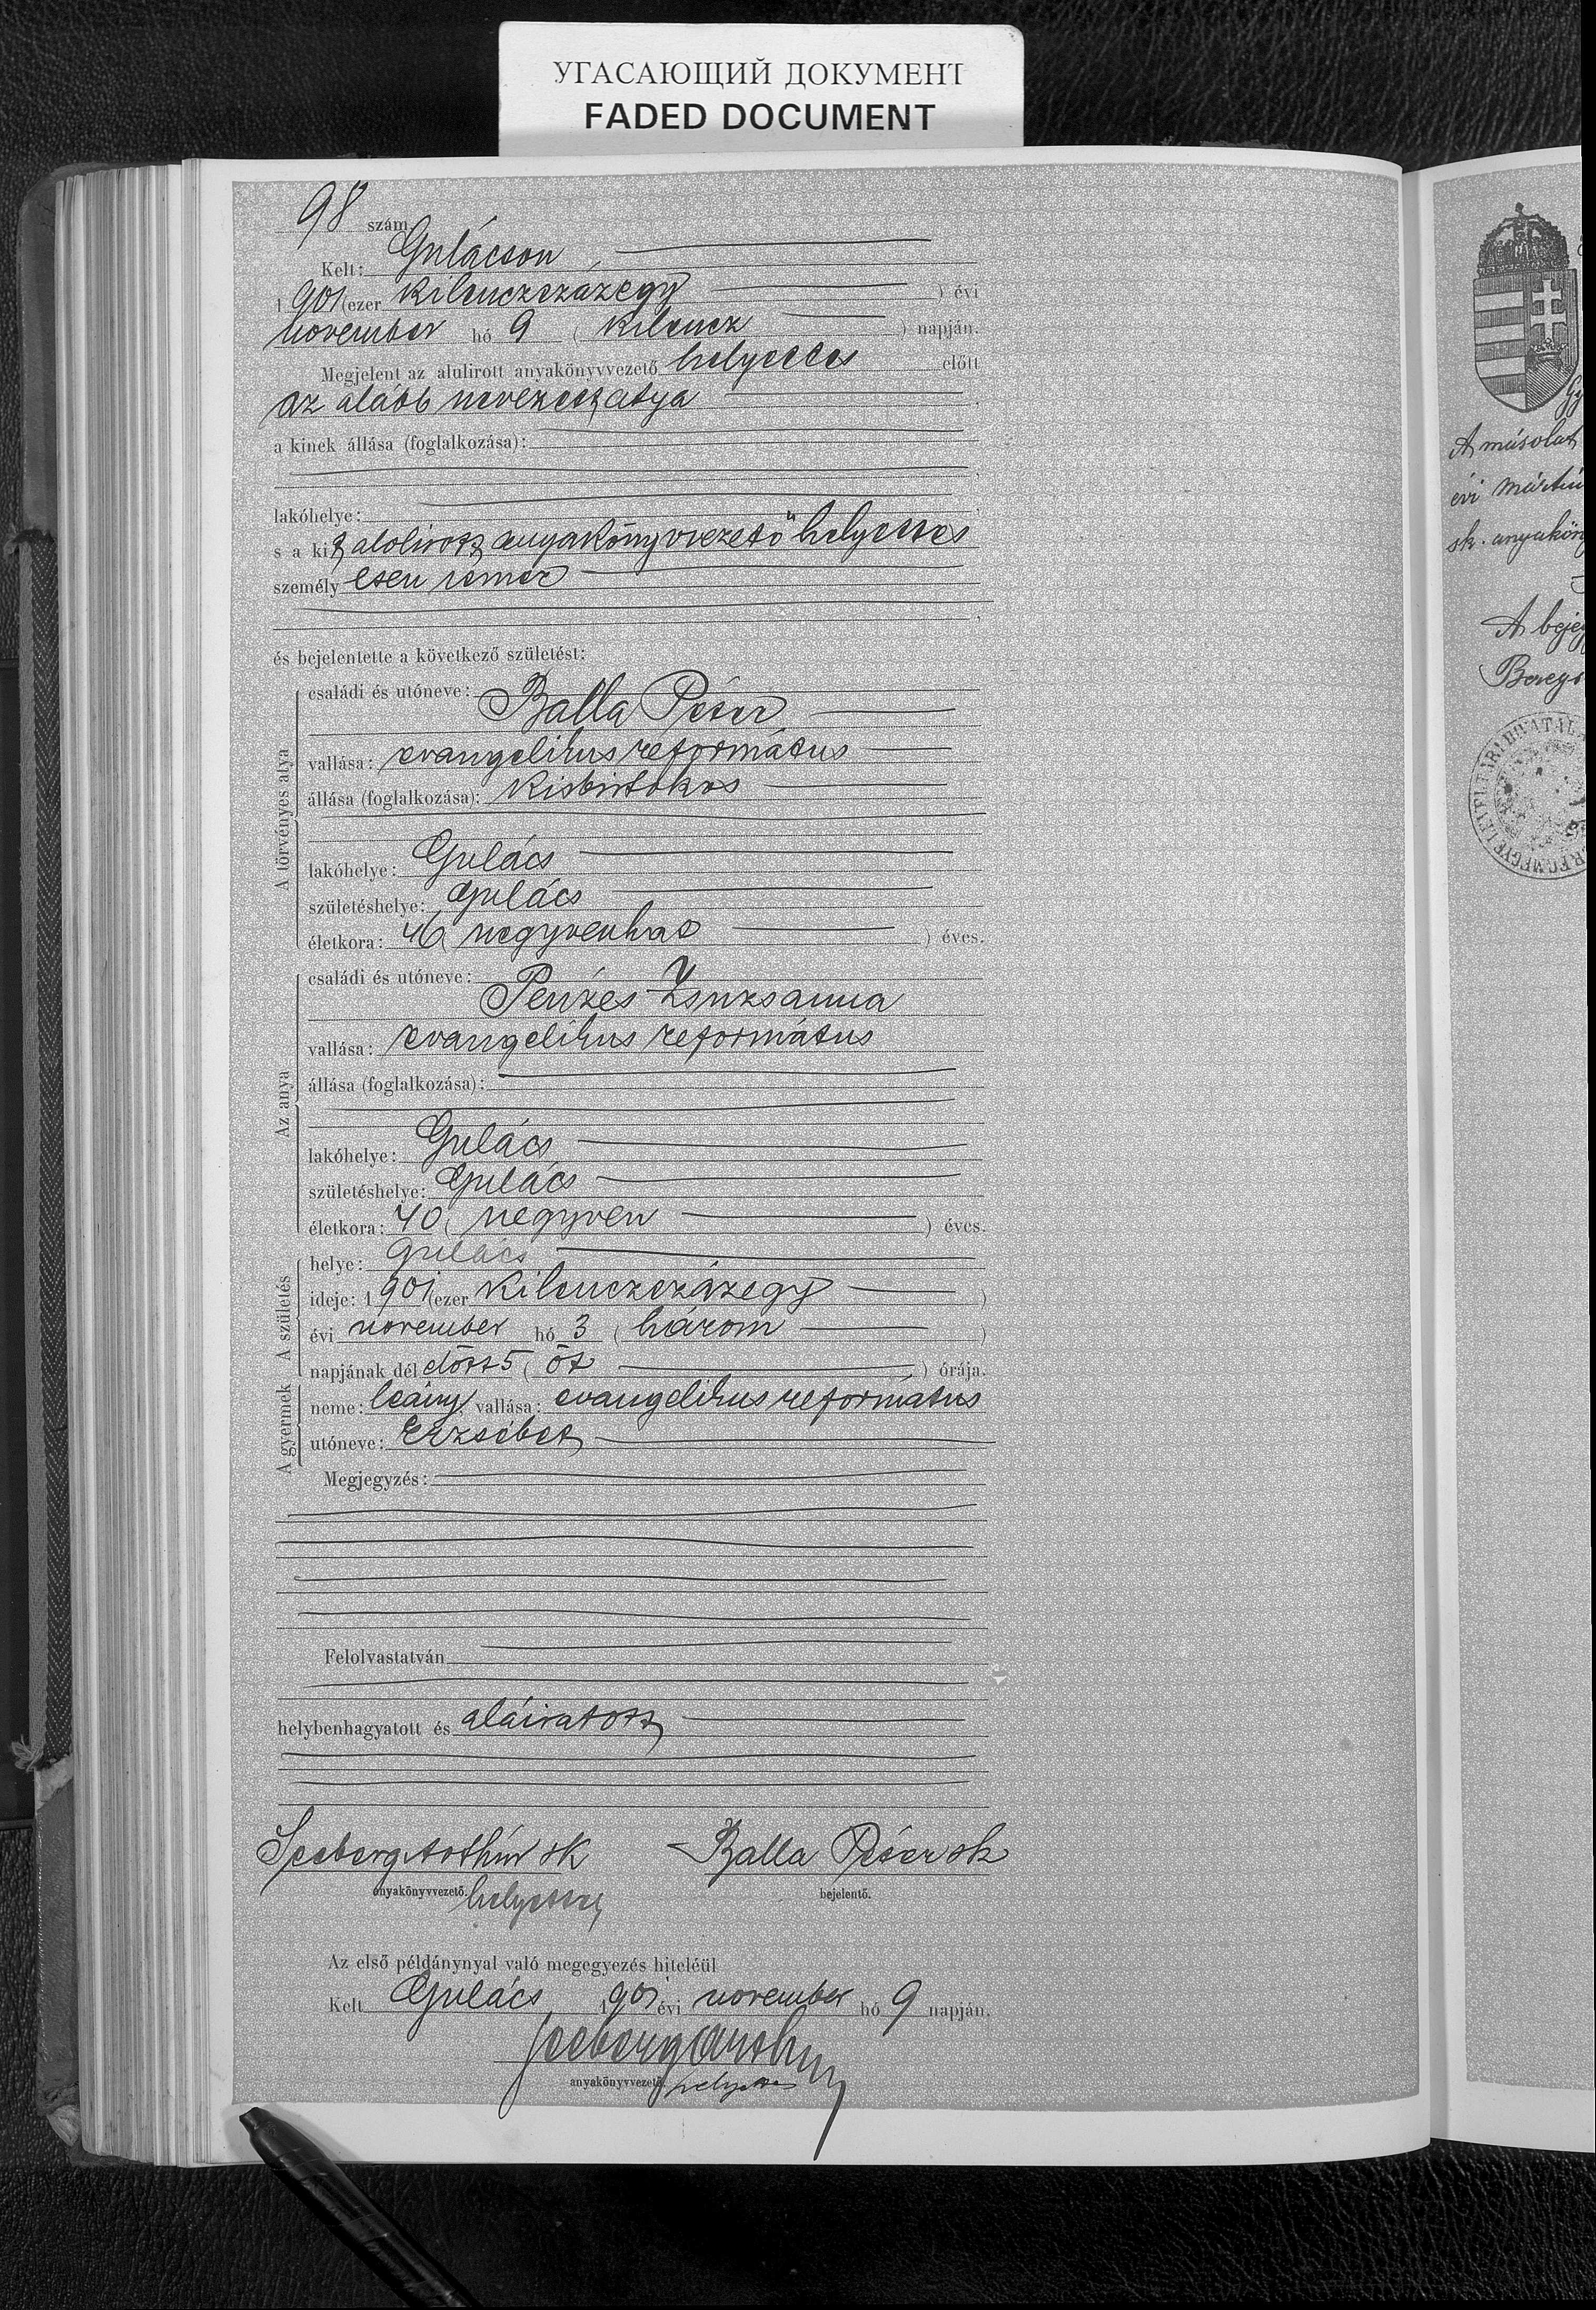 УГАСАЮЩИЙ ДОКУМЕНТ
FADED DOCUMENT
98 szám
Kelt: Gulácson
1901 (ezer kilenczszázegy ) évi
november hó 9 ( kilencz ) napján.
Megjelent az alulirott anyakönyvvezető helyettes előtt
az alább nevezett atya
a kinek állása (foglalkozása):
lakóhelye:
s a kit alolirott anyakönyvvezető helyettes
személyesen ismer
és bejelentette a következő születést:
A törvényes atya
családi és utóneve:
Balla Péter
vallása: evangelikus református
állása (foglalkozása): Kisbirtokos
lakóhelye: Gulács
születéshelye: Gulács
életkora: 46 ( negyvenhat ) éves.
Az anya
családi és utóneve:
Penzes Zsuzsanna
vallása: evangelikus református
állása (foglalkozása):
lakóhelye: Gulács
születéshelye: Gulács
életkora: 40 ( negyven ) éves.
A születés
helye: Gulács
ideje: 1901 (ezer kilenczszázegy )
évi november hó 3 ( három )
napjának dél előtt 5 ( öt ) órája.
A gyermek
neme: leány vallása: evangelikus református
utóneve: Erzsébet
Megjegyzés:
Felolvastatván
helybenhagyatott és aláiratott
Seeberg Arthúr sk Balla Péter sk
anyakönyvvezető. helyettes bejelentő.
Az első példánynyal való megegyezés hiteléül
Kelt Gulács, 1901 évi november hó 9 napján.
Seeberg Arthur
anyakönyvvezető. helyettes
A másolat
évi
sk.
A